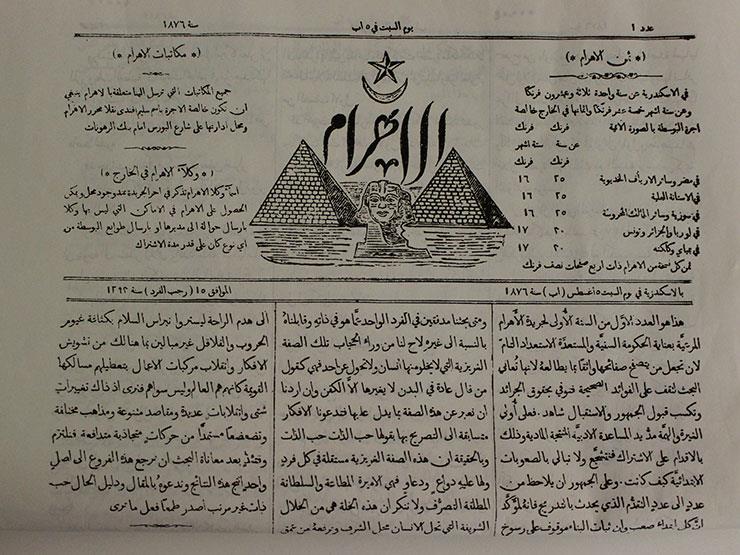 عدد ١
يوم السبت في ٥ اب
سنة ١٨٧٦
* ثمن الاهرام *
في الاسكندرية عن سنة واحدة ثلاثة وعشرون فرنكا
وعن ستة اشهر خمسة عشر فرنكا واثمانها في الخارج خالصة
اجرة البوسطة بالصورة الآتية
فرنك فرنك
عن سنة ستة اشهر
فرنك فرنك
في مصر وسائر الارياف الخديوية ٢٥ ١٦
في الاستانة العلية ٢٥ ١٦
في سورية وسائر الممالك المحروسة ٢٥ ١٦
في اوربا والجزائر وتونس ٢٠ ١٧
في بمباي وكلكته ٢٠ ١٧
ثمن كل نسخة من الاهرام ذات اربع صفحات نصف فرنك
الاهرام
* مكاتبات الاهرام *
جميع المكاتبات التي ترسل الينا متعلقة بالاهرام ينبغي
ان تكون خالصة الاجرة باسم سليم افندي نقلا محرر الاهرام
ومحل ادارتها على شارع البورس امام بنك الرهونات
* وكلاء الاهرام في الخارج *
اسماء وكلاء الاهرام تذكر في اخر الجريدة بمدد وجود محل ويمكن
الحصول على الاهرام في الاماكن التي ليس بها وكلا
بارسال حوالة الى مديرها او بارسال طوابع البوسطة من
اي نوع كان على قدر مدة الاشتراك
بالاسكندرية في يوم السبت ٥ اغسطس (اب) سنة ١٨٧٦
الموافق ١٥ (رجب الفرد) سنة ١٢٩٣
هذا هو العدد الاول من السنة الأولى لجريدة الأهرام
المرتبة بعناية الحكومة السنية والمستعدة الاستعداد التام
لان تجعل من يتصفح صفحاتها واثقا بما يطالعه لانها تعاني
البحث لتقف على الفوائد الصحيحة فتوفي بحقوق الجرائد
وتكسب قبول الجمهور والاستقبال شاهد. فعلى أولى
الغيرة والهمة مد يد المساعدة الادبية المنتجة المادية وذلك
بالاقدام على الاشتراك فتتشجع ولا تبالي بالصعوبات
الابتدائية كيف كانت. وعلى الجمهور ان يلاحظ من
عدد الى عدد التقدم الذي يحدث بالتدريج فانه مؤكد
ان كل ابتداء صعب وان ثبات البناء موقوف على رسوخ
ومتى بحثنا مدققين في الفرد الواحد عما هو في ذاته وقابلناه
بالنسبة الى غيره لاح لنا من وراء الحجاب تلك الصفة
الغريزية التي لا يخلو منها انسان ولا تحول عن احد فهي كقول
من قال عادة في البدن لا يغيرها الا الكفن وان اردنا
ان نعبر عن هذه الصفة بما يدل عليها فتدعونا الافكار
متسابقة الى التصريح بها بقولها حب الذات حب الذات
وبالحقيقة ان هذه الصفة الغريزية مستقلة في كل فرد
ولها عليه دواع ودعاو فهي الاميرة المطاعة والسلطانة
المطلقة التصرف ولا ننكر ان هذه الخلة هي من الخلال
الشريفة التي تحل الانسان محل الشرف وترفعه من عمق
الى هدم الراحة ليستروا نبراس السلام بكثافة غيوم
الحروب والقلاقل غير مبالين بما هنالك من تشويش
الافكار وانقلاب مركبات الاعمال بتعطيلهم مسالكها
القويمة كانهم هم العالم وليس سواهم فنرى اذ ذاك تغييرات
شتى وانقلابات عديدة ومقاصد متنوعة ومذاهب مختلفة
وتضعضعا مستمدا من حركات متجاذبة متدافعة فنلتزم
وقتئذ بعد معاناة البحث ان نرجع هذه الفروع الى اصل
واحد انتج هذه النتائج وندعوه بالمقال ودليل الحال حب
ذات غير مرتب اصدر طمعا فعل ما ترى